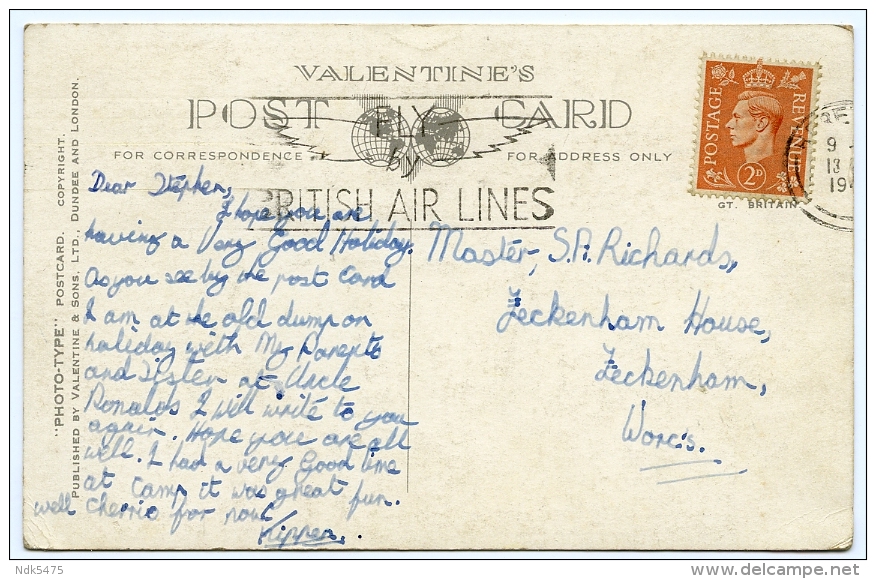 VALENTINE'S
POST CARD
FOR CORRESPONDENCE
FOR ADDRESS ONLY
FLY
by
BRITISH AIR LINES
POSTAGE
REVENUE
2D
GT. BRITAIN
9
13
194
"PHOTO-TYPE" POSTCARD. COPYRIGHT.
PUBLISHED BY VALENTINE & SONS, LTD., DUNDEE AND LONDON.
Dear Stephen,
I hope you are
having a Very Good Holiday.
As you see by the post card
I am at the old dump on
holiday with My Parents
and Sister at Uncle
Ronalds I will write to you
again. Hope you are all
well. I had a very Good time
at camp it was great fun.
well cherrio for now
Kipper.
Master, S.P. Richards,
Feckenham House,
Feckenham,
Worcs.
Ndk5475
delcampe.net